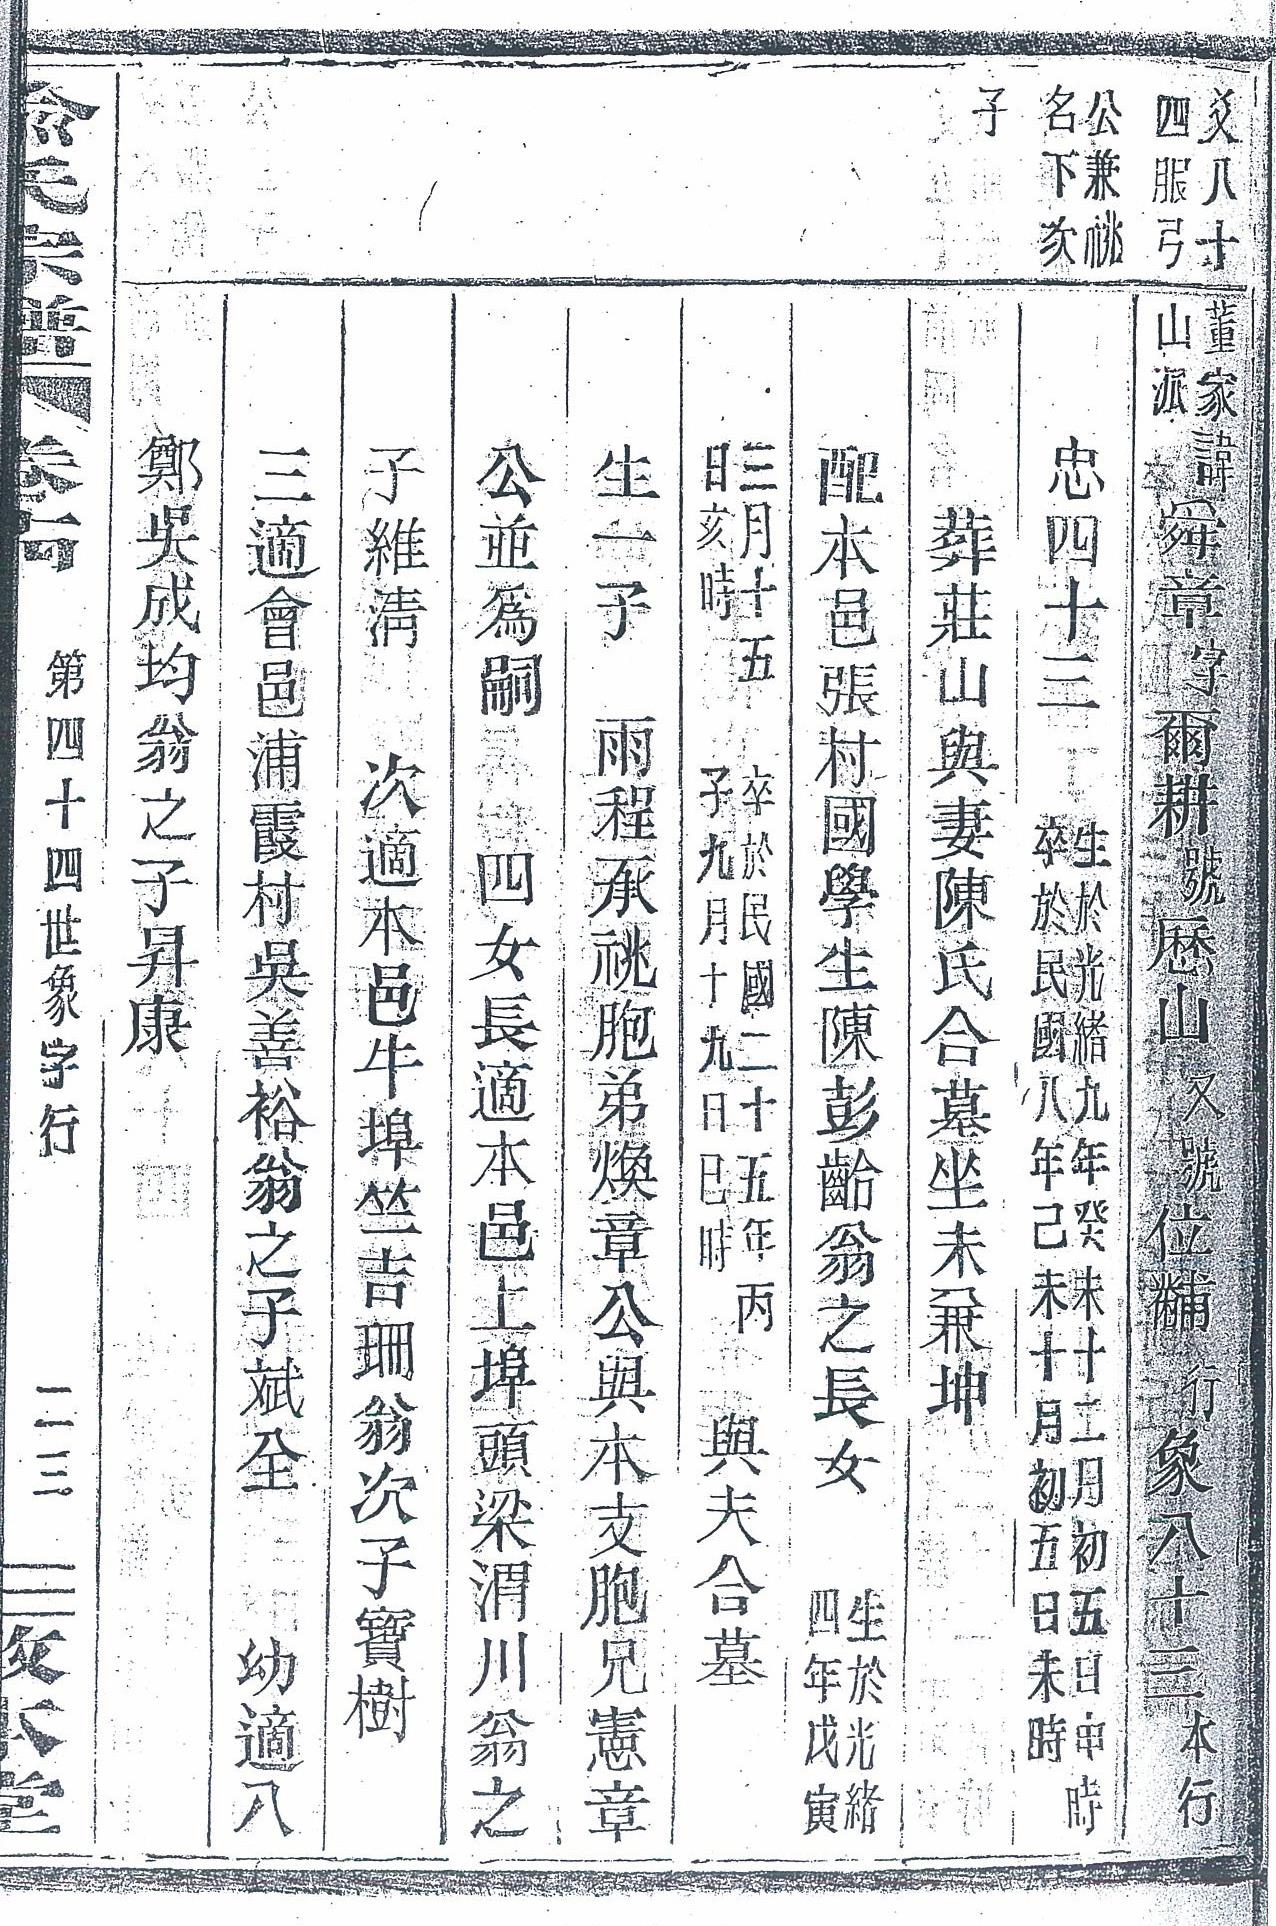 爻八十
四服弓
公兼祧
名下次
子
董家
山派
諱舜章字爾耕號歷山又號位黼行象八十三本行
忠四十三
生於光緒九年癸未十二月初五日申時
卒於民國八年己未十月初五日未時
葬莊山與妻陳氏合墓坐未兼坤
配本邑張村國學生陳彭齡翁之長女
生於光緒
四年戊寅
三月十五
日亥時
卒於民國二十五年丙
子九月十九日巳時
與夫合墓
生一子 雨程承祧胞弟煥章公與本支胞兄憲章
公並為嗣 四女長適本邑上埠頭梁渭川翁之
子維清 次適本邑牛埠竺吉珊翁次子寶樹
三適會邑浦霞村吳善裕翁之子斌全 幼適八
鄭吳成均翁之子昇康
俞氏宗譜 卷 第四十四世象字行 二三 敦本堂